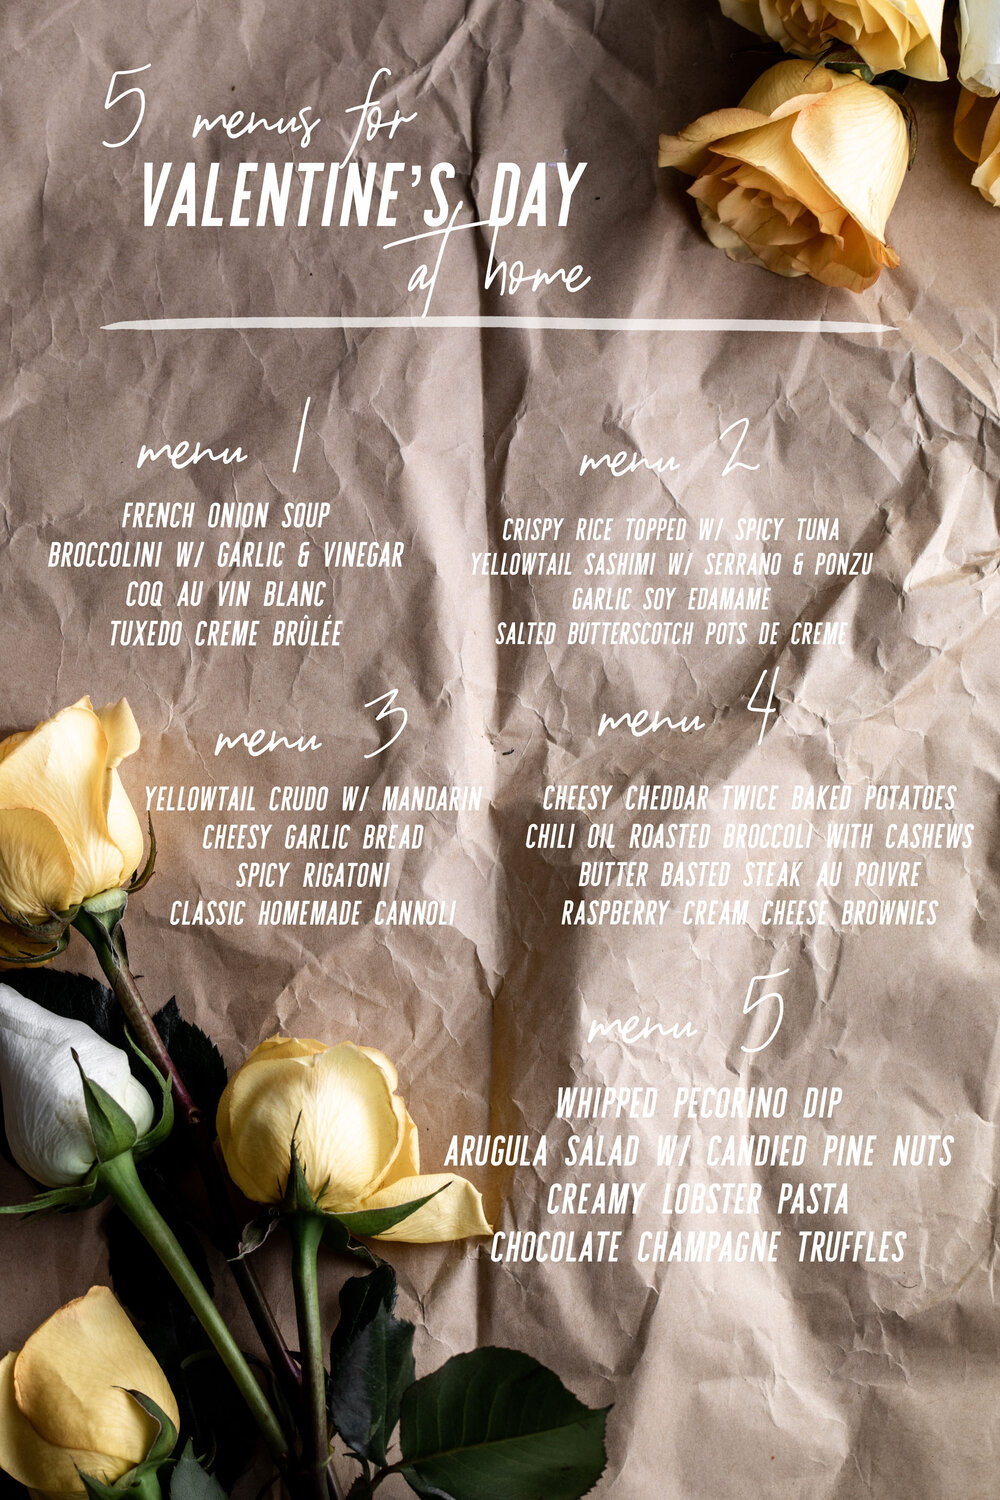 5 menus for
VALENTINE'S DAY
at home
menu 1
FRENCH ONION SOUP
BROCCOLINI W/ GARLIC & VINEGAR
COQ AU VIN BLANC
TUXEDO CREME BRÛLÉE
menu 2
CRISPY RICE TOPPED W/ SPICY TUNA
YELLOWTAIL SASHIMI W/ SERRANO & PONZU
GARLIC SOY EDAMAME
SALTED BUTTERSCOTCH POTS DE CREME
menu 3
YELLOWTAIL CRUDO W/ MANDARIN
CHEESY GARLIC BREAD
SPICY RIGATONI
CLASSIC HOMEMADE CANNOLI
menu 4
CHEESY CHEDDAR TWICE BAKED POTATOES
CHILI OIL ROASTED BROCCOLI WITH CASHEWS
BUTTER BASTED STEAK AU POIVRE
RASPBERRY CREAM CHEESE BROWNIES
menu 5
WHIPPED PECORINO DIP
ARUGULA SALAD W/ CANDIED PINE NUTS
CREAMY LOBSTER PASTA
CHOCOLATE CHAMPAGNE TRUFFLES